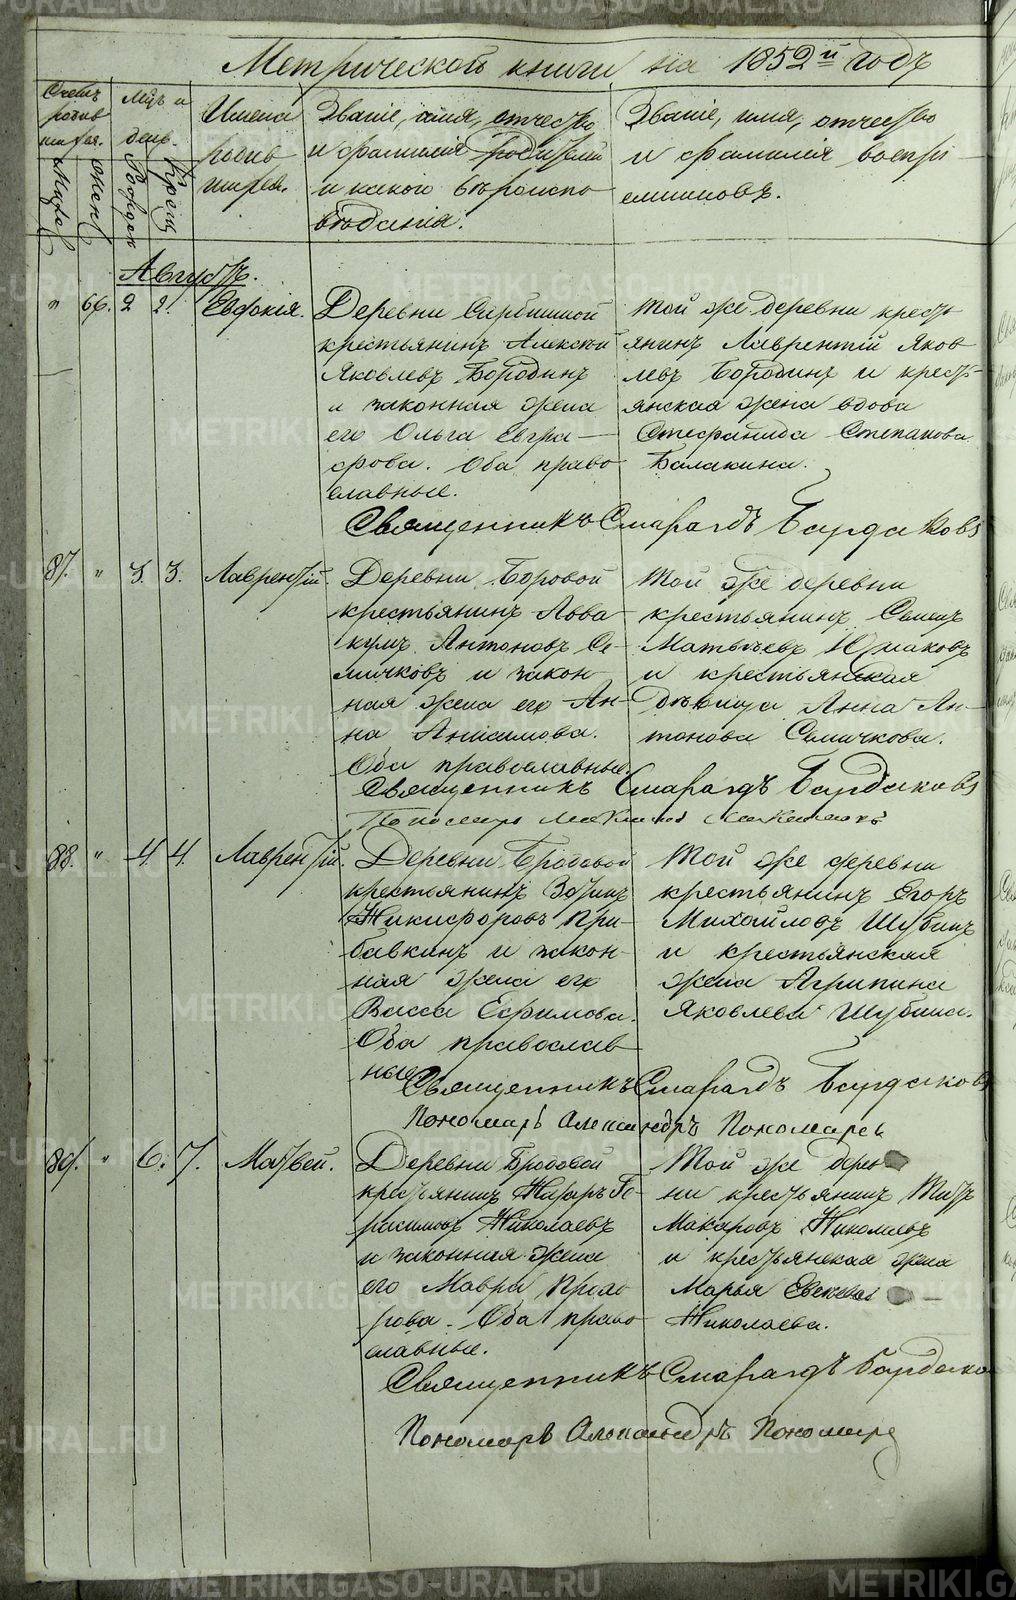 Метрической книги на 1852й годъ
Счетъ родив шихся.
Муж. Жен.
Мѣц. и день.
Рожден Крещ
Имена родив шихся.
Званіе, имя, отчество
и фамилія родителей
и какого вѣроиспо
вѣданія.
Званіе, имя, отчество
и фамилія воспрі
емниковъ.
Августъ.
" 66. 2 2. Евдокія.
Деревни
крестьянинъ Алексѣй
Яковлевъ Бородинъ
и законная жена
его Ольга Евгра
фова. Оба право
славные.
Той же деревни кресть
янинъ Лаврентій Яков
левъ Бородинъ и кресть
янская жена вдова
Стефанида Степанова
Балакина.
Священникъ Смарагдъ Бардаковъ
87. " 3. 3. Лаврентій.
Деревни Боровой
крестьянинъ Авва
кумъ Антоновъ Се
мичковъ и закон
ная жена его Ан
на Анисимова.
Оба православные.
Той же деревни
крестьянинъ Семенъ
Матвѣевъ Юшаковъ
и крестьянская
дѣвица Анна Ан
тонова Семичкова.
Священникъ Смарагдъ Бардаковъ
88. " 4. 4. Лаврентій.
Деревни Бродовой
крестьянинъ Зотикъ
Никифоровъ При
бавкинъ и закон
ная жена его
Васса Ефимова.
Оба православ
ные
Той же деревни
крестьянинъ Егоръ
Михайловъ Шубинъ
и крестьянская
жена Агрипина
Яковлева Шубина.
Священникъ Смарагдъ Бардаковъ
Пономарь Александръ Пономаревъ
89. " 6. 7. Матвей.
Деревни Бродовой
крестьянинъ Назаръ Ге
расимовъ Николаевъ
и законная жена
его Мавра Прохо
рова. Оба право
славные.
Той же дерев
ни крестьянинъ Титъ
Макаровъ Николаевъ
и крестьянская жена
Марья
Николаева.
Священникъ Смарагдъ Бардако
Пономарь Александръ Пономарев
METRIKI.GASO-URAL.RU